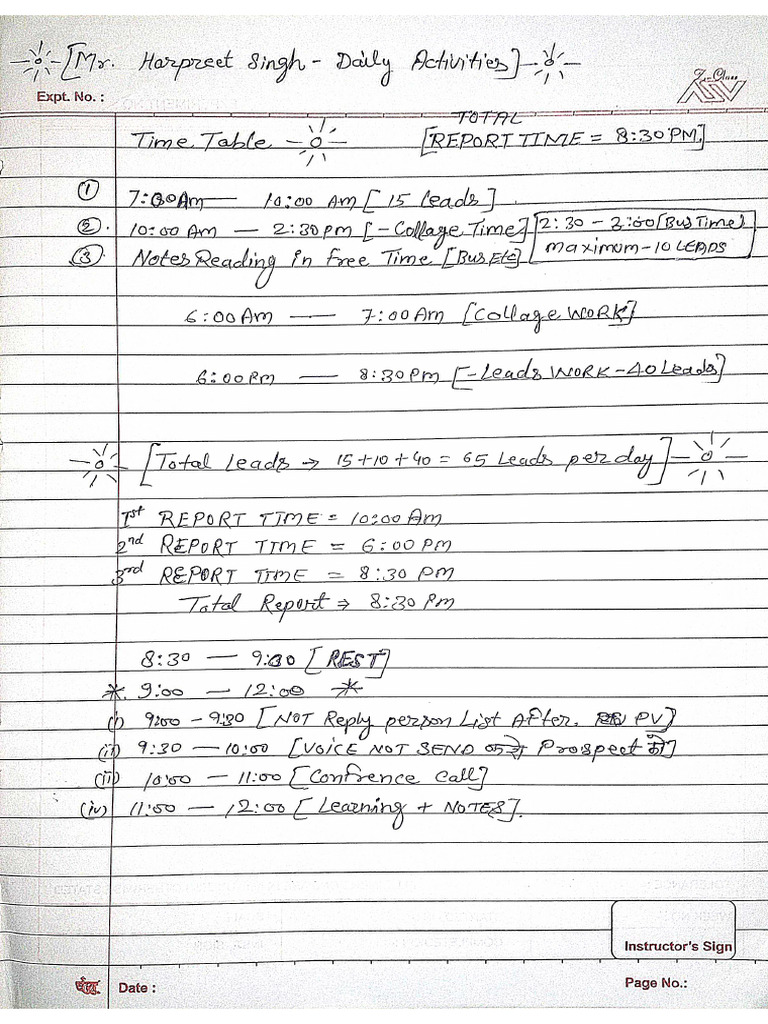 [Mr. Harpreet Singh - Daily Activities]
Expt. No. :
Time Table
TOTAL
[REPORT TIME = 8:30 PM.]
① 7:00 Am — 10:00 AM [15 leads]
②. 10:00 AM — 2:30 pm [-Collage Time]
2:30 - 3:00 [Bus Time]
maximum - 10 LEADS
③ Notes Reading in free Time [Bus Etc]
6:00 Am — 7:00 AM [Collage WORK]
6:00 Pm — 8:30 Pm [-Leads WORK - 40 Leads]
[Total leads → 15+10+40 = 65 Leads per day]
1st REPORT TIME = 10:00 Am
2nd REPORT TIME = 6:00 PM
3rd REPORT TIME = 8:30 PM
Total Report ⇒ 8:30 Pm
8:30 — 9:00 [REST]
*. 9:00 — 12:00 *
(i) 9:00 - 9:30 [NOT Reply person List After. PV]
(ii) 9:30 — 10:00 [VOICE NOT SEND करो Prospect को]
(iii) 10:00 — 11:00 [Confrence Call]
(iv) 11:00 — 12:00 [Learning + NOTES].
Instructor's Sign
Date :
Page No.: